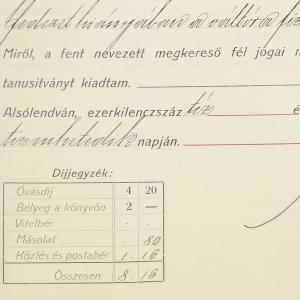 fedezet hiányában a váltó a fiz
Miről, a fent nevezett megkereső fél jogai m
tanusitványt kiadtam.
Alsólendván, ezerkilenczszáz tiz é
tizenhetedik napján.
Díjjegyzék:
Óvásdíj 4 20
Bélyeg a könyvön 2 —
Vitelbér . .
Másolat . 80
Közlés és postabér 1. 16
Összesen 8. 16